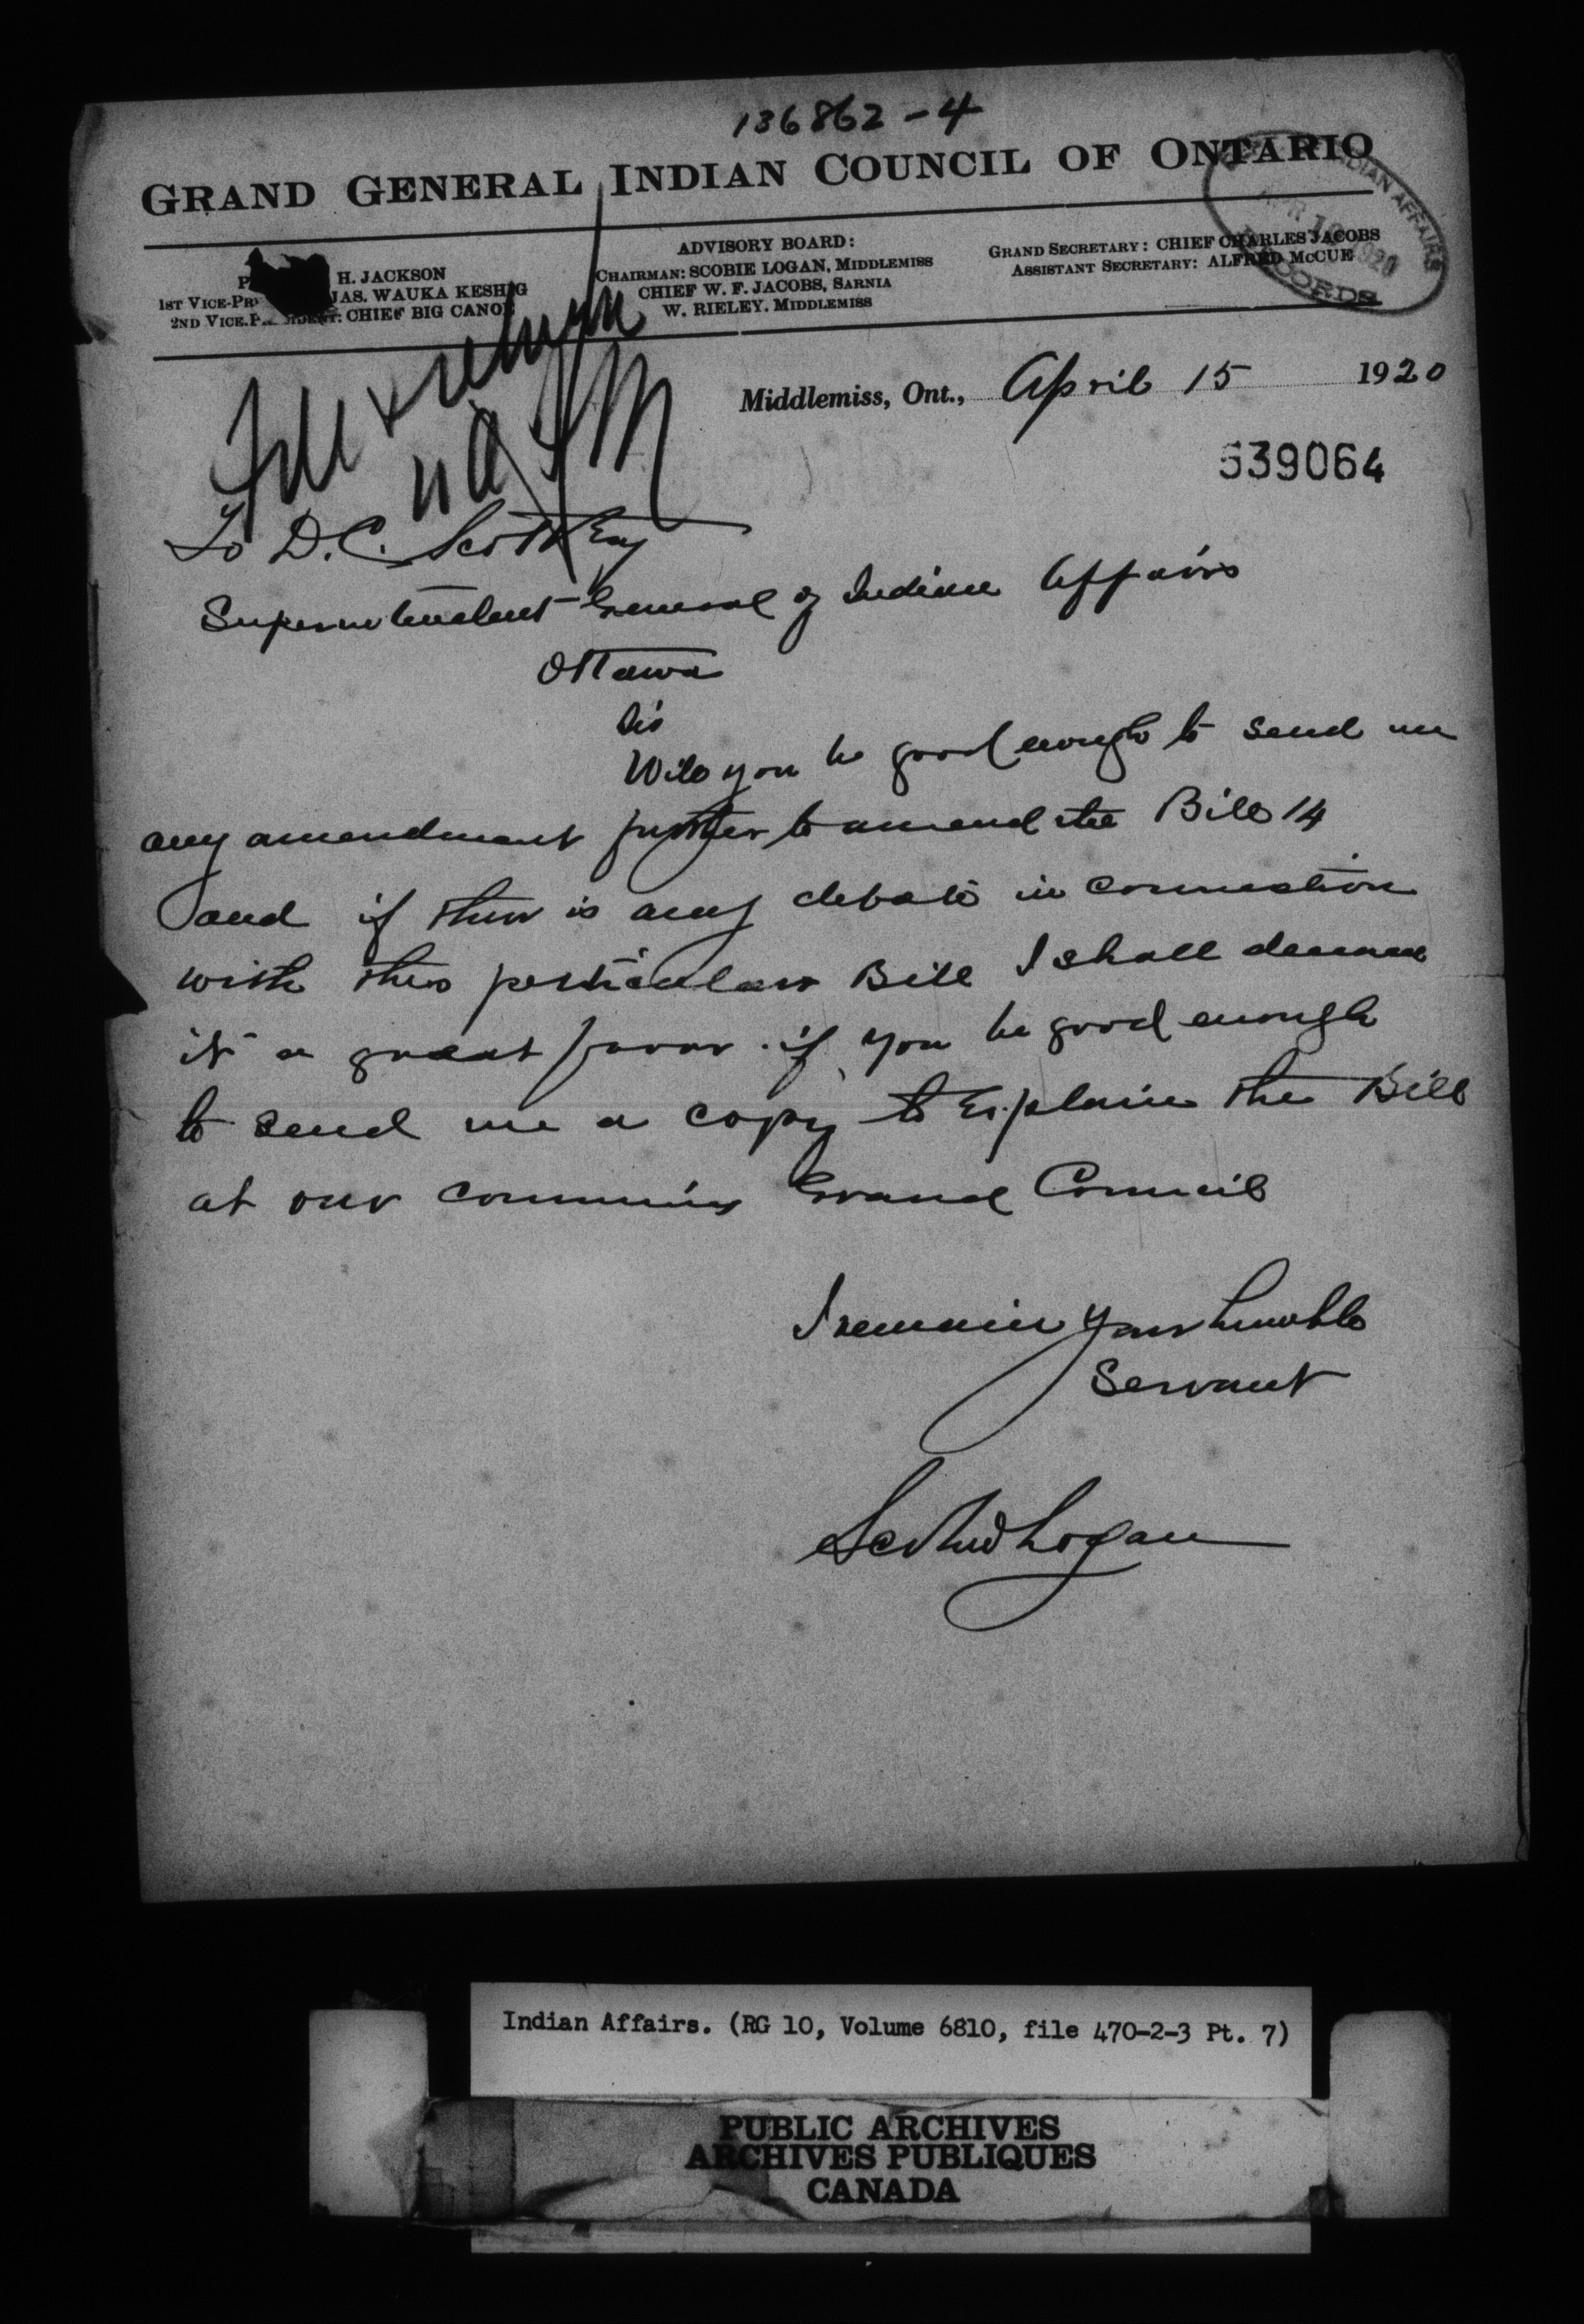 136862-4
GRAND GENERAL INDIAN COUNCIL OF ONTARIO
H. JACKSON
1ST VICE-PR JAS. WAUKA KESHIG
2ND VICE-P IDENT: CHIEF BIG CANOE
ADVISORY BOARD:
CHAIRMAN: SCOBIE LOGAN, MIDDLEMISS
CHIEF W. F. JACOBS, SARNIA
W. RIELEY. MIDDLEMISS
GRAND SECRETARY: CHIEF CHARLES JACOBS
ASSISTANT SECRETARY: ALFRED McCUE
INDIAN AFFAIRS
1920
RECORDS
Middlemiss, Ont., April 15 1920
539064
To D.C. Scott Esq
Superintendent General of Indian Affairs
Ottawa
Sir
Will you be good enough to send me
any amendment further to amend the Bill 14
and if there is any debate in connection
with this perticular Bill I shall deem
it a great favor if you be good enough
to send me a copy to Explain the Bill
at our comming Grand Council
I remain your humble
Servant
Scobie Logan
Indian Affairs. (RG 10, Volume 6810, file 470-2-3 Pt. 7)
PUBLIC ARCHIVES
ARCHIVES PUBLIQUES
CANADA